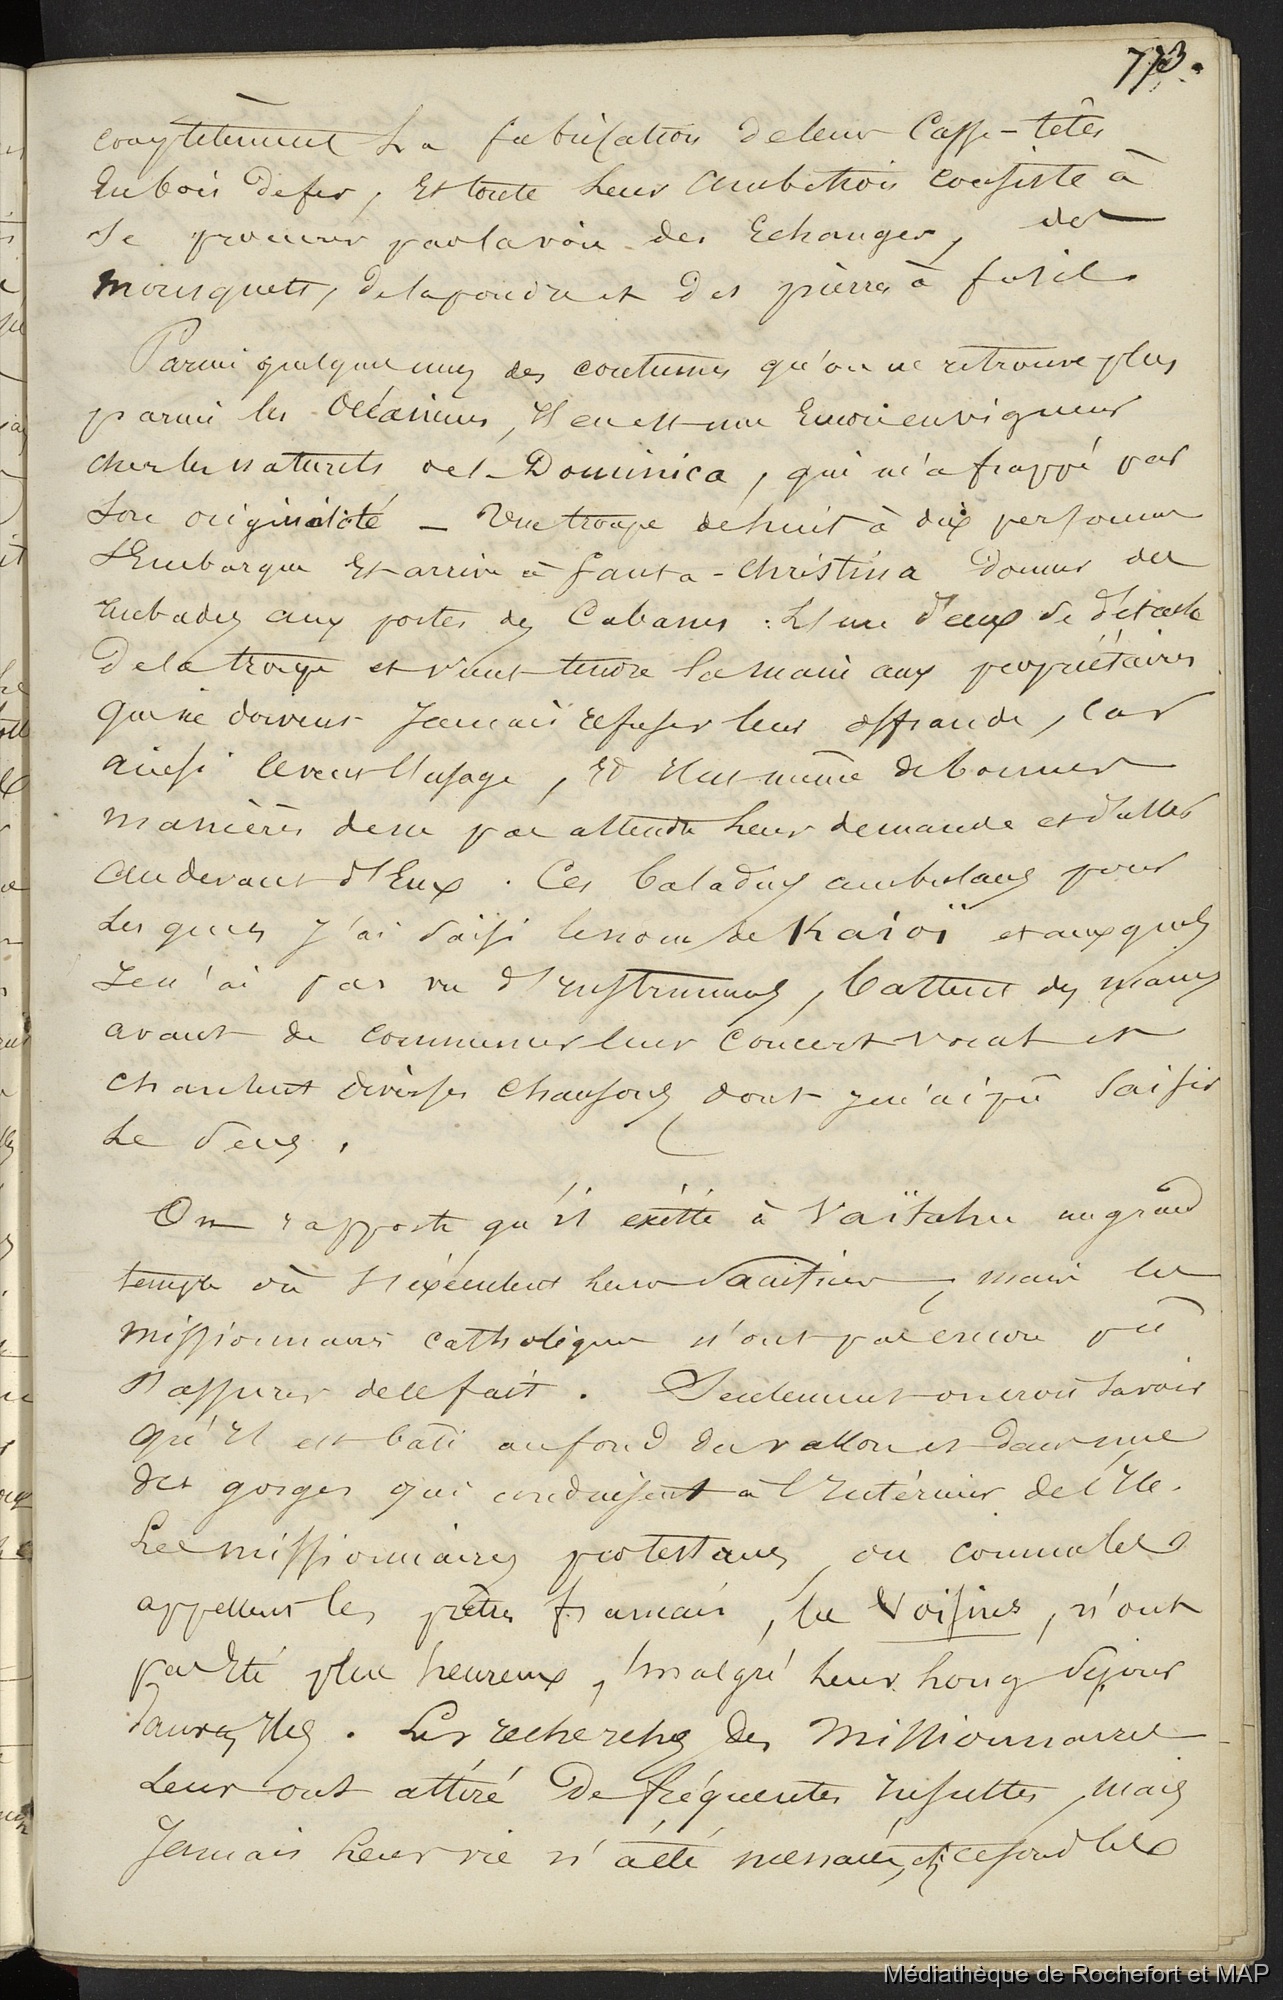 773.
complètement La fabrication de leur Casse-têtes
En bois de fer, Et toute leur Ambition consiste à
se procurer par la voie des Echanges, des
mousquets, de la poudre et des pierres à fusil.
Parmi quelques unes des coutumes qu'on ne retrouve plus
parmi les Océaniens, Il en est une Encore en vigueur
chez les naturels de la Dominica, qui m'a frappé par
son originalité — Une troupe de huit à dix personnes
s'Embarque Et arrive à Santa-Christina Donner des
aubades aux portes des Cabanes : L'un d'eux se détache
De la troupe et vient tendre la main aux propriétaires
Qui ne doivent Jamais refuser leur offrande, Car
ainsi le veut l'usage, Et Il est même de bonnes
manières de ne pas attendre leur demande et d'aller
au devant d'Eux. Ces baladins ambulans pour
Lesquels J'ai saisi le nom de Kaioï et auxquels
Je n'ai pas vu d'Instrumens, battent des mains
avant de commencer leur Concert vocal et
chantent diverses Chansons, dont je n'ai pû saisir
Le sens.
On rapporte qu'il existe à Vaïtahu un grand
temple où s'exécutent leurs Sacrifices, mais les
missionnaires catholiques n'ont pas encore pû
s'assurer de ce fait. Seulement on croit savoir
qu'Il est bâti au fond du vallon et dans une
des gorges qui conduisent à l'Intérieur de l'Ile.
Les missionnaires protestans, ou comme les
appellent les prêtres français, les Voisins, n'ont
pas Eté plus heureux, malgré leur long séjour
Dans ces Iles. Les recherches des Missionnaires
Leur ont attiré De fréquentes insultes, mais
Jamais leur vie n'a été menacée, et ce sont les
Médiathèque de Rochefort et MAP